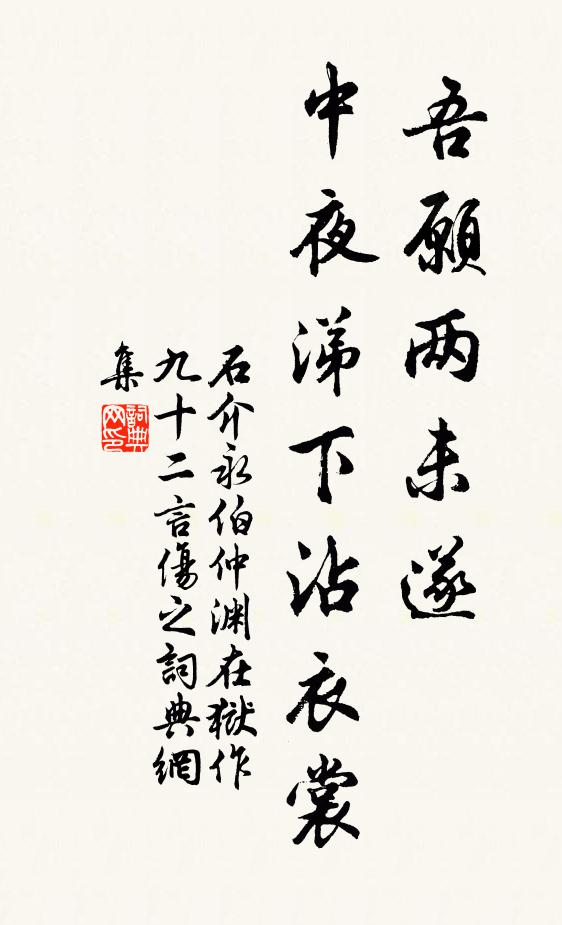 吾願两未遂
中夜涕下沾衣裳
石介永伯仲渊在獄作
九十二言傷之詞典網
集
詞典
网印